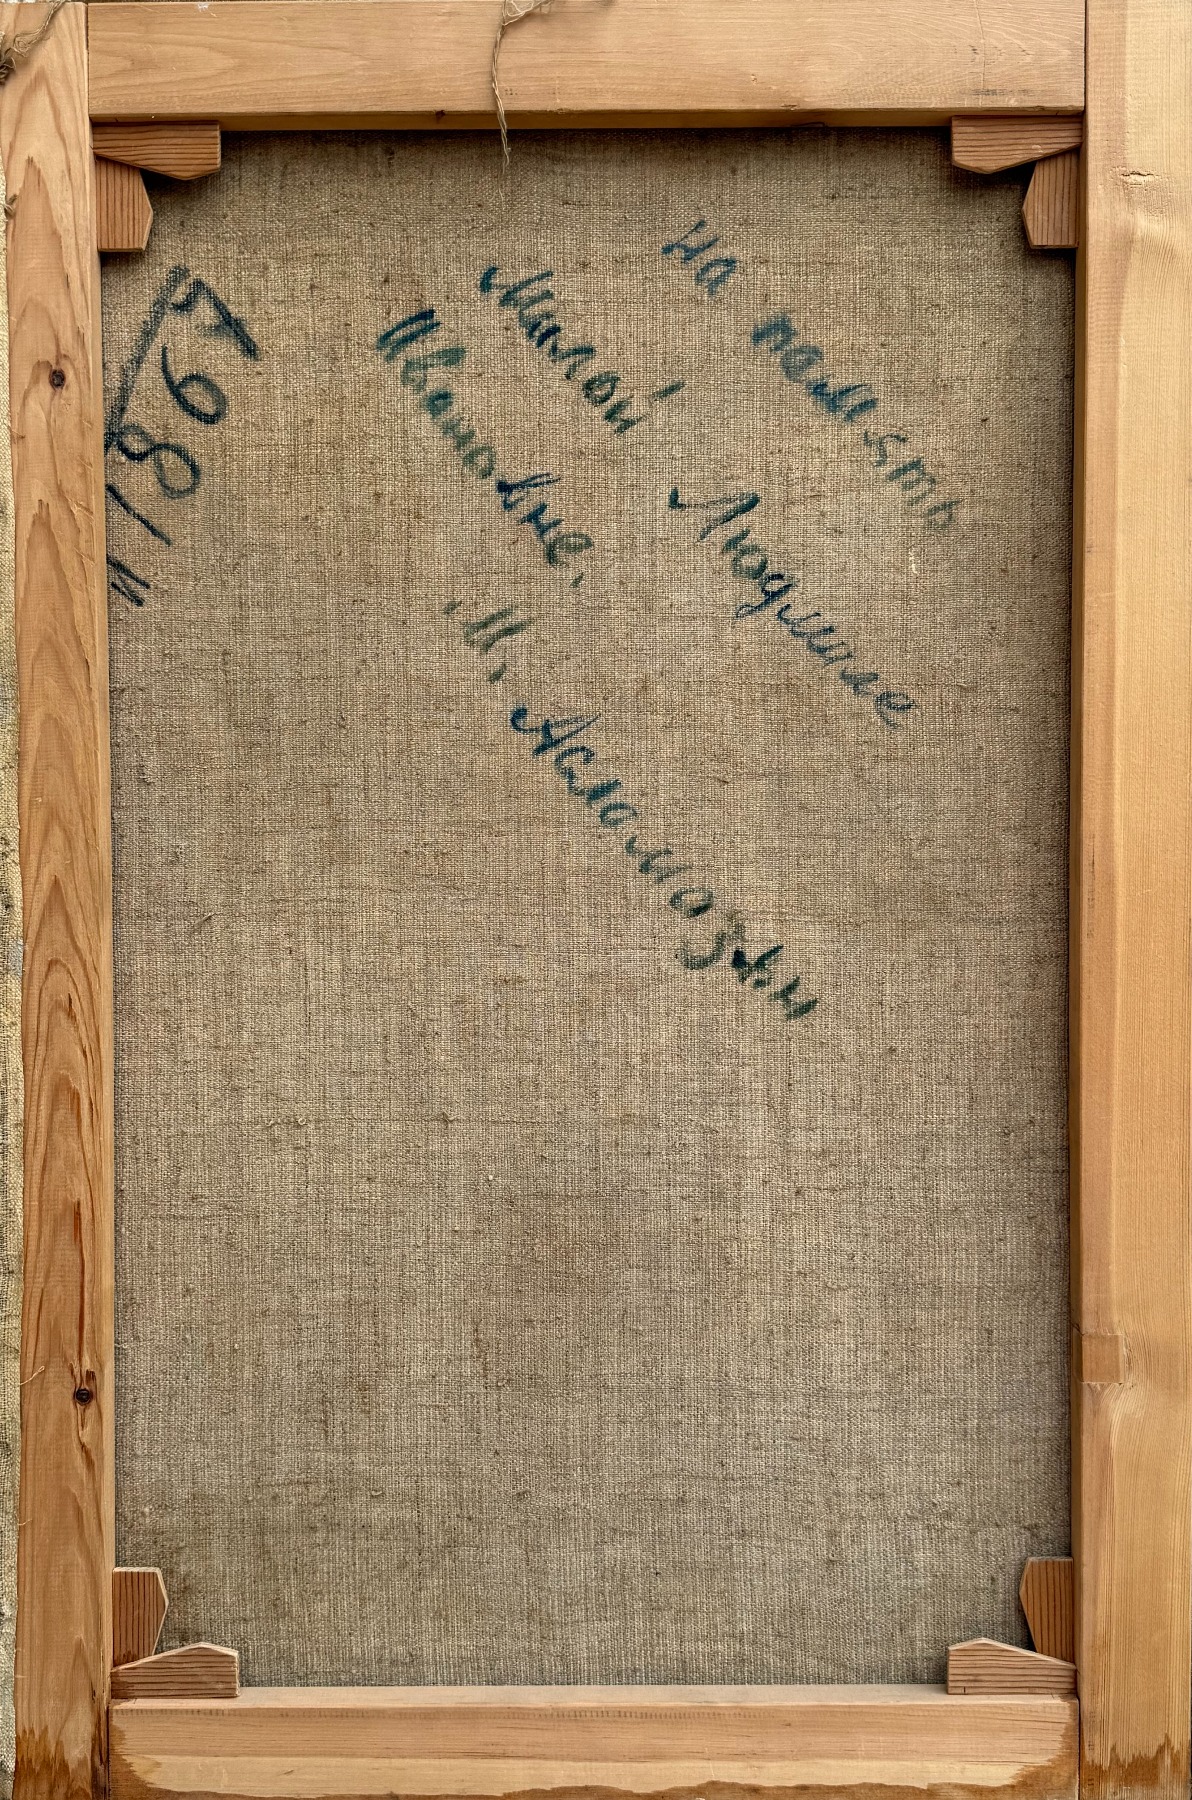 На память
Милой Людмиле
Ивановне.
М. Асламазян